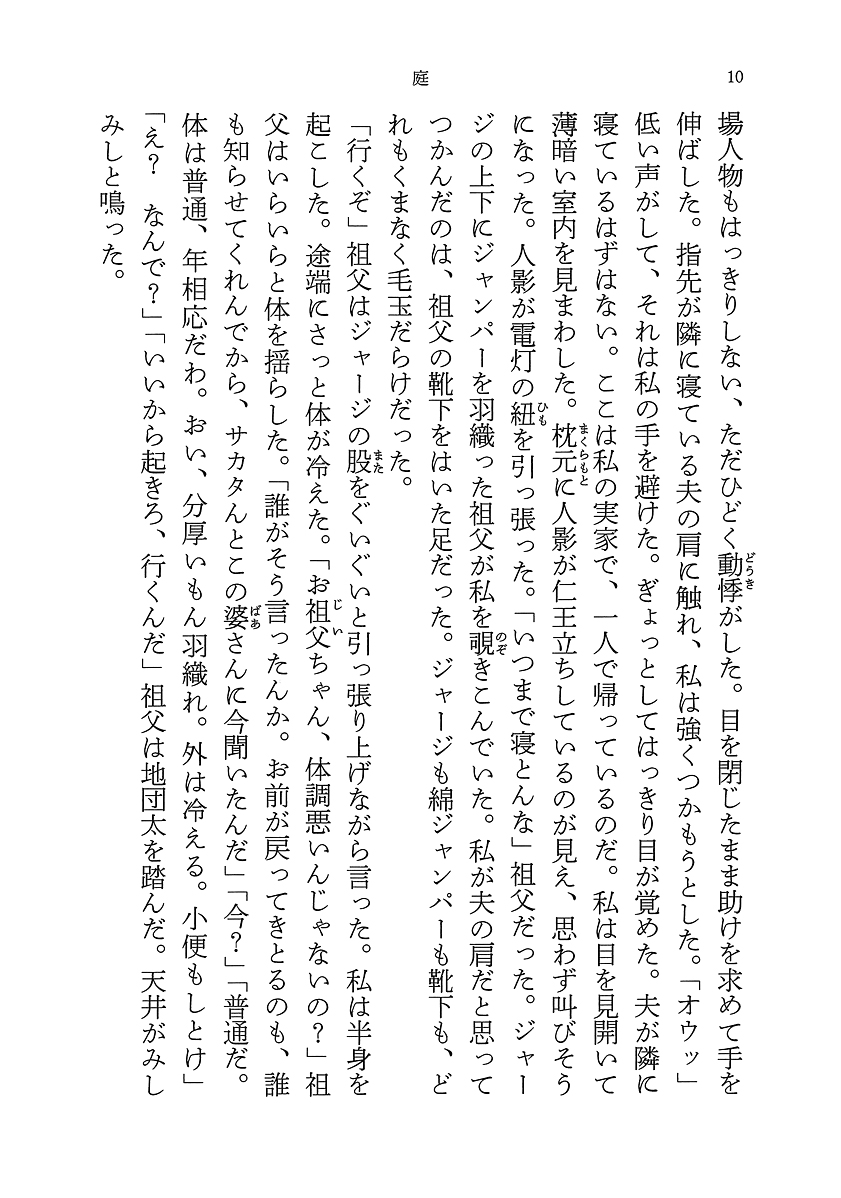 庭
10
場人物もはっきりしない、ただひどく動悸がした。目を閉じたまま助けを求めて手を
伸ばした。指先が隣に寝ている夫の肩に触れ、私は強くつかもうとした。「オウッ」
低い声がして、それは私の手を避けた。ぎょっとしてはっきり目が覚めた。夫が隣に
寝ているはずはない。ここは私の実家で、一人で帰っているのだ。私は目を見開いて
薄暗い室内を見まわした。枕元に人影が仁王立ちしているのが見え、思わず叫びそう
になった。人影が電灯の紐を引っ張った。「いつまで寝とんな」祖父だった。ジャー
ジの上下にジャンパーを羽織った祖父が私を覗きこんでいた。私が夫の肩だと思って
つかんだのは、祖父の靴下をはいた足だった。ジャージも綿ジャンパーも靴下も、ど
れもくまなく毛玉だらけだった。
「行くぞ」祖父はジャージの股をぐいぐいと引っ張り上げながら言った。私は半身を
起こした。途端にさっと体が冷えた。「お祖父ちゃん、体調悪いんじゃないの？」祖
父はいらいらと体を揺らした。「誰がそう言ったんか。お前が戻ってきとるのも、誰
も知らせてくれんでから、サカタんとこの婆さんに今聞いたんだ」「今？」「普通だ。
体は普通、年相応だわ。おい、分厚いもん羽織れ。外は冷える。小便もしとけ」
「え？　なんで？」「いいから起きろ、行くんだ」祖父は地団太を踏んだ。天井がみし
みしと鳴った。